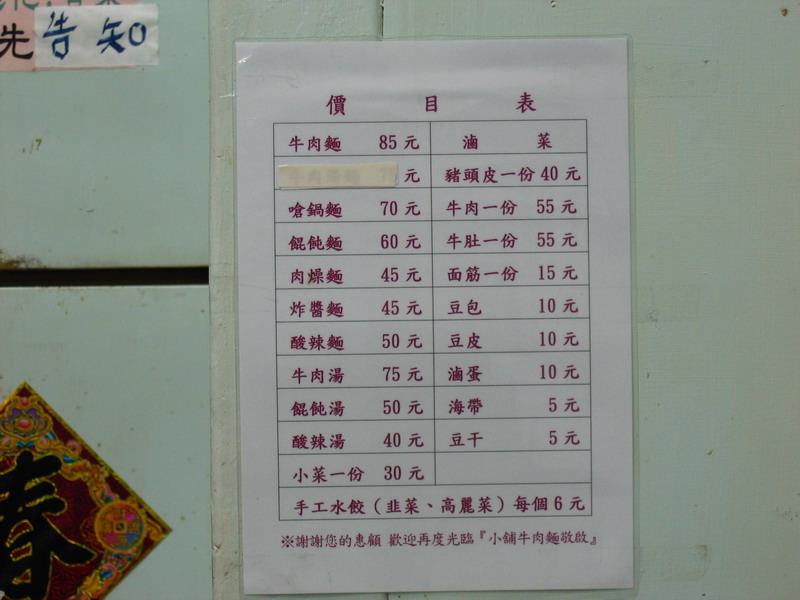 先告知
價 目 表
牛肉麵 85元 滷 菜
元 豬頭皮一份 40元
嗆鍋麵 70元 牛肉一份 55元
餛飩麵 60元 牛肚一份 55元
肉燥麵 45元 面筋一份 15元
炸醬麵 45元 豆包 10元
酸辣麵 50元 豆皮 10元
牛肉湯 75元 滷蛋 10元
餛飩湯 50元 海帶 5元
酸辣湯 40元 豆干 5元
小菜一份 30元
手工水餃（韭菜、高麗菜）每個6元
※謝謝您的惠顧 歡迎再度光臨『小舖牛肉麵敬啟』
春